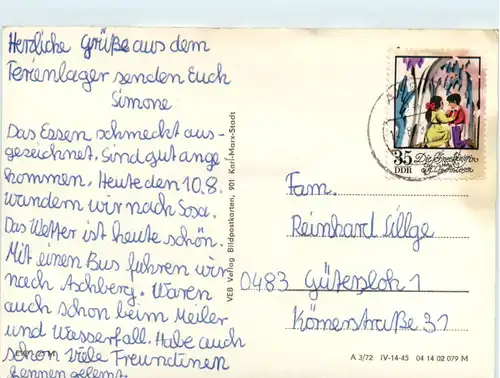 Herzliche Grüße aus dem
Ferienlager senden Euch
Simone
Das Essen schmeckt aus-
gezeichnet. Sind gut ange-
kommen. Heute den 10.8.
wandern wir nach Sosa.
Das Wetter ist heute schön.
Mit einen Bus fuhren wir
nach Aschberg. Waren
auch schon beim Meiler
und Wasserfall. Habe auch
schon viele Freundinen
kennen gelernt.
VEB Verlag Bildpostkarten, 901 Karl-Marx-Stadt
35
DDR
Die
Fam.
Reinhard Sillge
0483 Gütersloh 1
Körnerstraße 31
A 3/72 IV-14-45 04 14 02 079 M